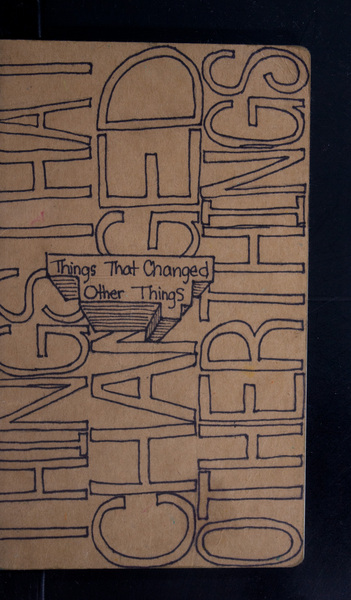 THINGS THAT
CHANGED
OTHER THINGS
Things That Changed
Other Things